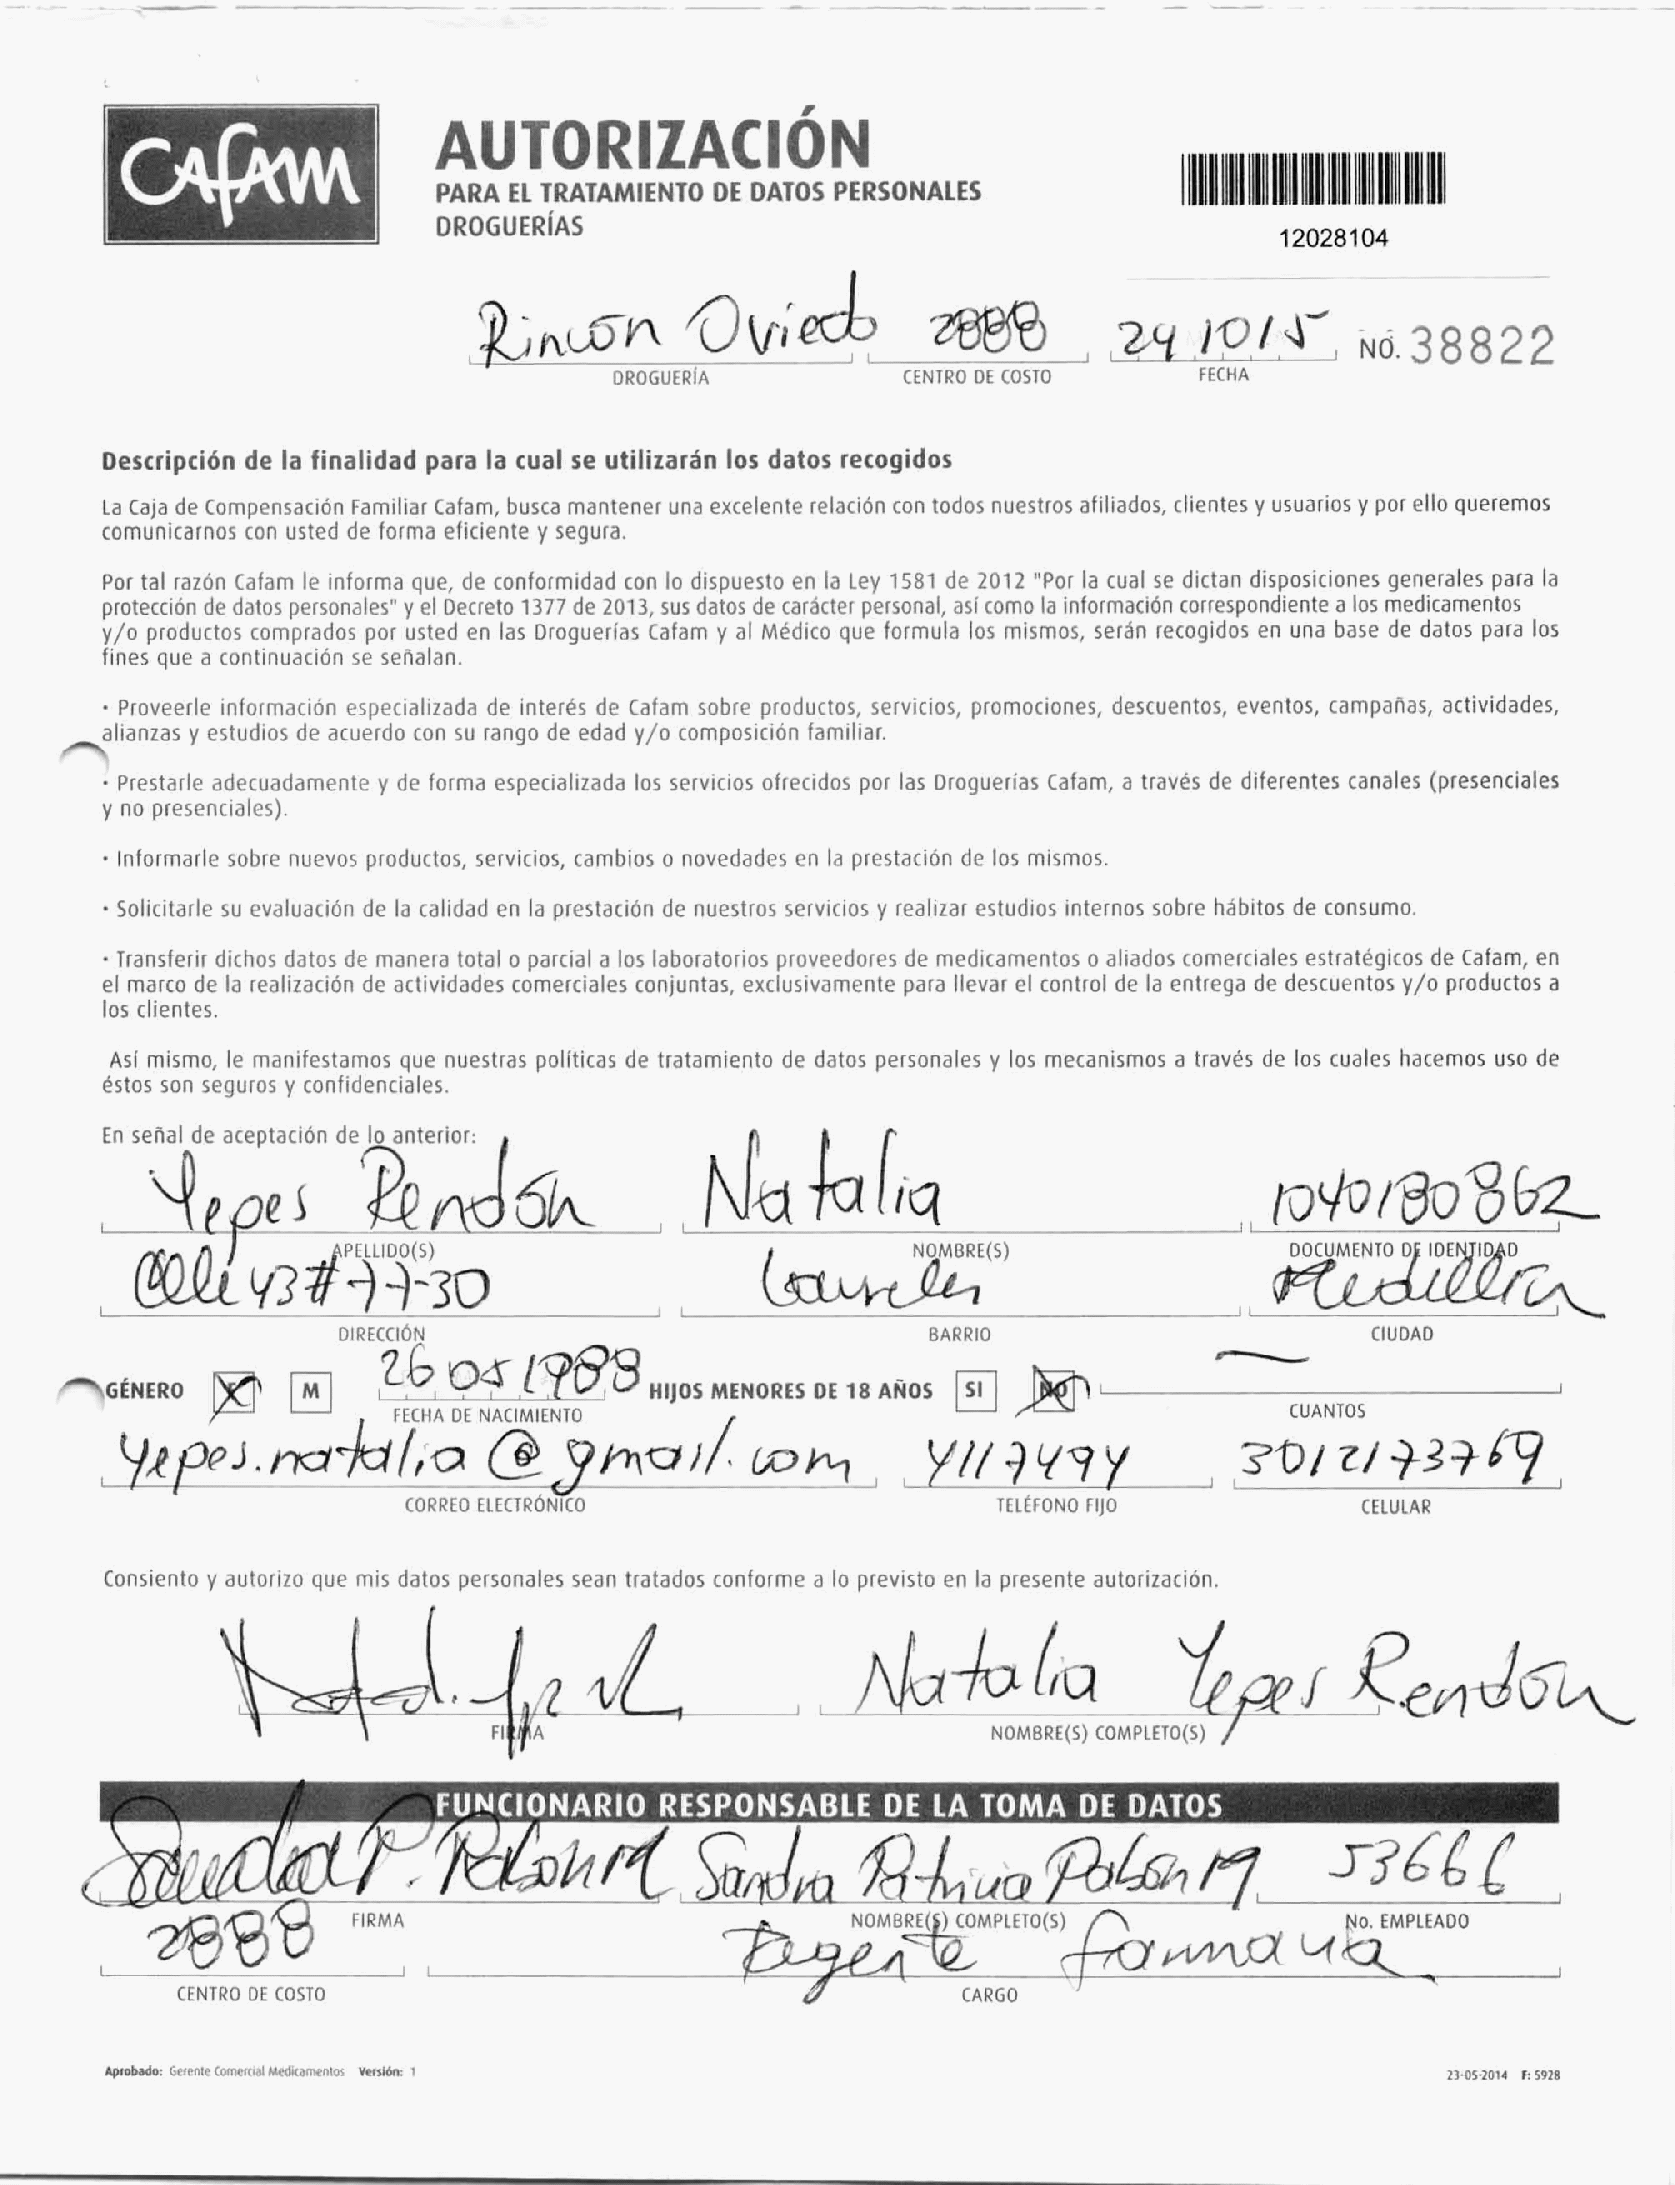 CAFAM
AUTORIZACIÓN
PARA EL TRATAMIENTO DE DATOS PERSONALES
DROGUERÍAS
12028104
Rincón Oviedo 2888 24 10 15 NO. 38822
DROGUERÍA CENTRO DE COSTO FECHA
Descripción de la finalidad para la cual se utilizarán los datos recogidos
La Caja de Compensación Familiar Cafam, busca mantener una excelente relación con todos nuestros afiliados, clientes y usuarios y por ello queremos
comunicarnos con usted de forma eficiente y segura.
Por tal razón Cafam le informa que, de conformidad con lo dispuesto en la Ley 1581 de 2012 "Por la cual se dictan disposiciones generales para la
protección de datos personales" y el Decreto 1377 de 2013, sus datos de carácter personal, así como la información correspondiente a los medicamentos
y/o productos comprados por usted en las Droguerías Cafam y al Médico que formula los mismos, serán recogidos en una base de datos para los
fines que a continuación se señalan.
· Proveerle información especializada de interés de Cafam sobre productos, servicios, promociones, descuentos, eventos, campañas, actividades,
alianzas y estudios de acuerdo con su rango de edad y/o composición familiar.
· Prestarle adecuadamente y de forma especializada los servicios ofrecidos por las Droguerías Cafam, a través de diferentes canales (presenciales
y no presenciales).
· Informarle sobre nuevos productos, servicios, cambios o novedades en la prestación de los mismos.
· Solicitarle su evaluación de la calidad en la prestación de nuestros servicios y realizar estudios internos sobre hábitos de consumo.
· Transferir dichos datos de manera total o parcial a los laboratorios proveedores de medicamentos o aliados comerciales estratégicos de Cafam, en
el marco de la realización de actividades comerciales conjuntas, exclusivamente para llevar el control de la entrega de descuentos y/o productos a
los clientes.
Así mismo, le manifestamos que nuestras políticas de tratamiento de datos personales y los mecanismos a través de los cuales hacemos uso de
éstos son seguros y confidenciales.
En señal de aceptación de lo anterior:
Yepes Rendón Natalia 1040180862
APELLIDO(S) NOMBRE(S) DOCUMENTO DE IDENTIDAD
Calle 43 # 77-30 Laureles Medellin
DIRECCIÓN BARRIO CIUDAD
26 05 1988
GÉNERO M HIJOS MENORES DE 18 AÑOS SI NO
FECHA DE NACIMIENTO CUANTOS
yepes.natalia@gmail.com 4117494 3012173769
CORREO ELECTRÓNICO TELÉFONO FIJO CELULAR
Consiento y autorizo que mis datos personales sean tratados conforme a lo previsto en la presente autorización.
Natalia Yepes Rendón
FIRMA NOMBRE(S) COMPLETO(S)
FUNCIONARIO RESPONSABLE DE LA TOMA DE DATOS
Sandra P. Pabon M Sandra Patricia Pabon M 53666
FIRMA NOMBRE(S) COMPLETO(S) No. EMPLEADO
2888 Regente farmacia
CENTRO DE COSTO CARGO
Aprobado: Gerente Comercial Medicamentos Versión: 1 23-05-2014 F: 5928